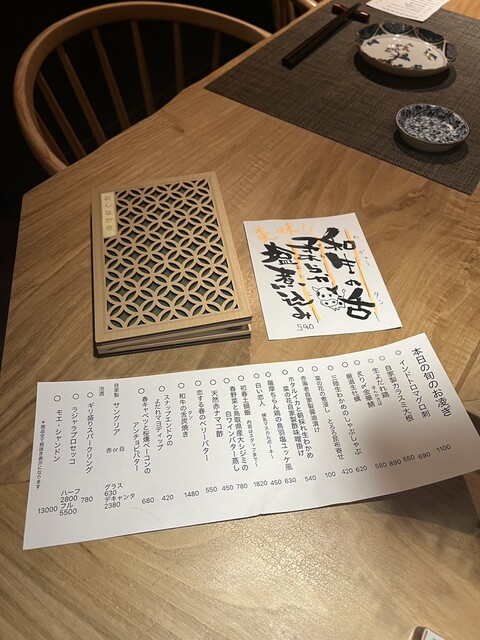 おしながき
楽味!!
和牛の舌
ネギまみれ
塩煮込み
590
本日の旬のお凌ぎ
インドトロマグロ刺 1100
自家製カラスミ大根 690
生よだれ鶏 890
炙り〆金華鯖
厳選生牡蠣
三陸生わかめのしゃぶしゃぶ
菜の花お煮浸し とろろ昆布寄せ
赤海老自家製醤油漬け 540
ホタルイカと朝採れ生わかめ
菜の花自家製酢味噌掛け 630
薩摩ちらん鶏の鳥羽塩ユッケ風 450
白い恋人 1820
初春土筍飯 780
春野菜と鳥取県産大シジミの
白ワインバター蒸し
天然赤ナマコ酢 450
恋する春のベリーバター 550
和牛の舌炭焼き 1480
スナップエンドウの
よだれマヨディップ 420
春キャベツと桜燻ベーコンの
アンチョビバター 680
自家製 サングリア 赤or白
グラス 630
デキャンタ 2380
泡酒
ギリ盛りスパークリング 780
ラジャラプロセッコ
ハーフ 2800
フル 5500
モエ・シャンドン 13000